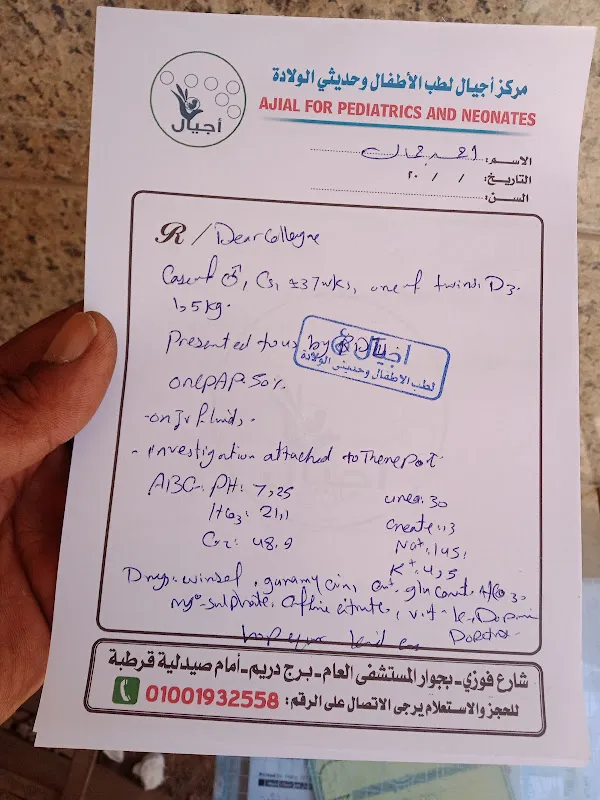 مركز أجيال لطب الأطفال وحديثي الولادة
AJIAL FOR PEDIATRICS AND NEONATES
أجيال
الاسم:
التاريخ: / / ٢٠
السن:
R/ Dear Colleague
Case of ♂, Cs, ±37wks, one of twins. D3.
1,5kg.
Presented to us by RD
أجيال
لطب الأطفال وحديثى الولادة
on CPAP. 50%.
- on Iv fluids.
- investigation attached to The report
ABG: PH: 7,25
HCO3: 21,1
CO2: 48.9
urea: 30
Na+: 145
K+: 4,5
Drugs:
sulphate, Caffeine citrate, vit k, Dopamin
شارع فوزي - بجوار المستشفى العام - برج دريم - أمام صيدلية قرطبة
للحجز والاستعلام يرجى الاتصال على الرقم: 01001932558